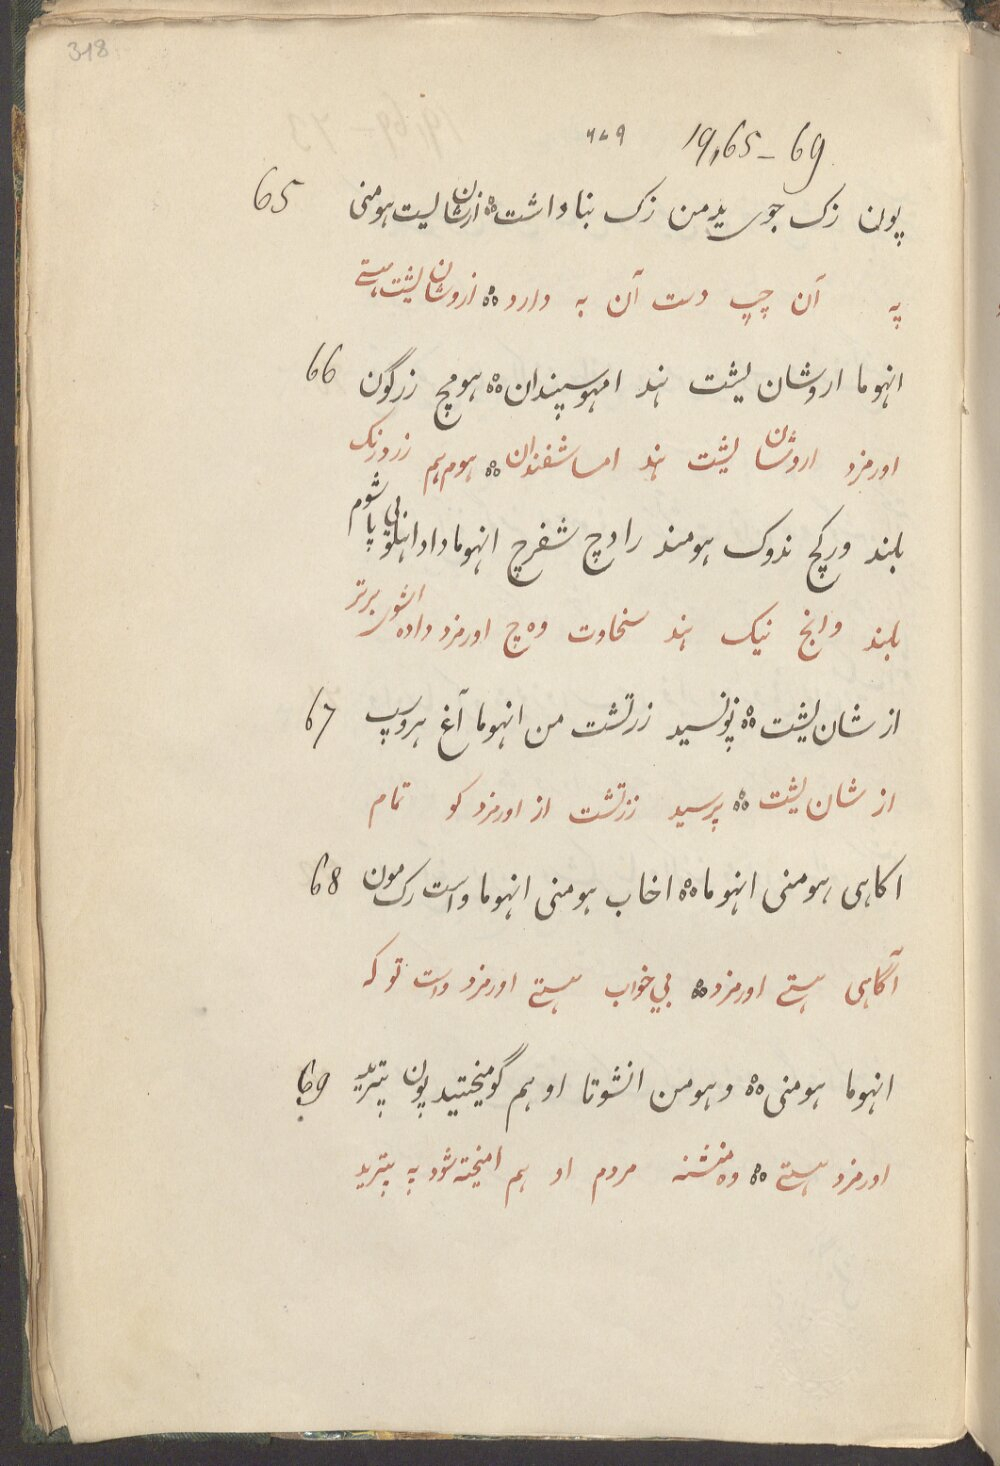 318
19,65-69
پون زک جوی یدمن زک بنا داشت ازشان لیت هومنی 65
په آن چپ دست آن به دارد ازوشان لیشت هستے
انهوما اروشان لیشت هند امهوسپندان هومچ زرگون 66
اورمزد اروشان لیشت هند امساشفندان هوم هم زردرنک
بلند ورکچ ندوک هومند رادچ شفرچ انهوما داد اهلو پاشوم
بلند وانج نیک هند سخاوت وه چ اورمزد داده اشوی برتر
از شان لیشت پونسید زرتشت من انهوما آغ هروسپ 67
از شان لیشت پرسید زرتشت از اورمزد کو تمام
اکاهی هومنی انهوما اخاب هومنی انهوما واست رک مون 68
آگاهی هستے اورمزد بی خواب هستے اورمزد واست تو که
انهوما هومنی وهومن انشوتا او هم گومیختید پون پتیرید 69
اورمزد هستے وه منشنه مردم او هم امیخته شود په پتیرید